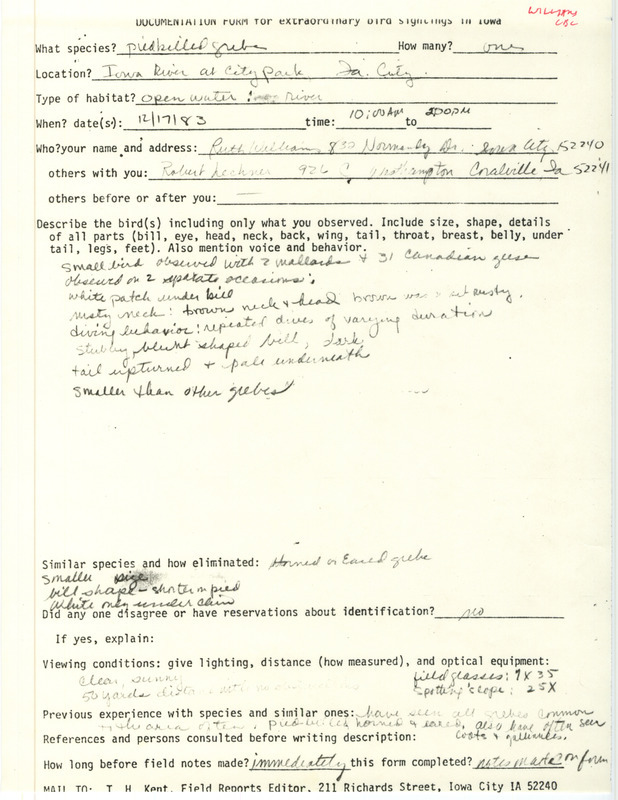 WILLIAMS
CBC
DOCUMENTATION FORM for extraordinary bird sightings in Iowa
What species? piedbilled grebe How many? one
Location? Iowa River at City Park, Ia. City.
Type of habitat? open water : river
When? date(s): 12/17/83 time: 10:00AM to 2:00PM
Who?your name and address: Ruth Williams, 830 Normandy Dr. Iowa City 52240
others with you: Robert 926 Coralville Ia 52241
others before or after you:
Describe the bird(s) including only what you observed. Include size, shape, details
of all parts (bill, eye, head, neck, back, wing, tail, throat, breast, belly, under
tail, legs, feet). Also mention voice and behavior.
Small bird observed with 2 mallards & 31 Canadian geese
observed on 2 separate occasions.
white patch under bill
rusty neck: brown neck & head brown was rusty.
diving behavior: repeated dives of varying duration
stubby, blunt shaped bill, dark
tail upturned & pale underneath
smaller than other grebes
Similar species and how eliminated: Horned or Eared grebe
smaller size
bill shape - shorter in pied
white only under chin
Did any one disagree or have reservations about identification? no
If yes, explain:
Viewing conditions: give lighting, distance (how measured), and optical equipment:
clear, sunny field glasses: 7X35
50 yards spotting scope: 25X
Previous experience with species and similar ones: have seen all grebes common
to this area often. Piedbilled, horned & eared, also have often seen
References and persons consulted before writing description: coots & gallinules.
How long before field notes made? immediately this form completed? notes made on form
MAIL TO: T. H. Kent, Field Reports Editor, 211 Richards Street, Iowa City IA 52240